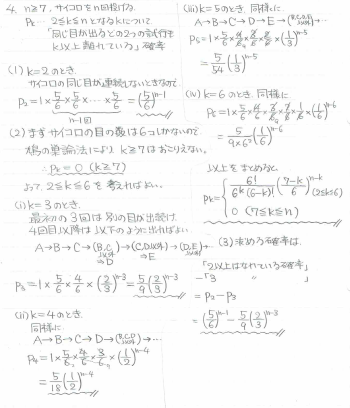 4. n≧7. サイコロをn回投げる.
Pk… 2≦k≦nとなるkについて
「同じ目が出るどの2つの試行も
k以上離れている」確率
(1) k=2のとき.
サイコロの同じ目が連続しないときなので
P2=1×5/6×5/6×…×5/6=(5/6)^n-1
n-1回
(2) まずサイコロの目の数は6つしかないので
鳩の巣論法により k≧7はおこりえない.
∴Pk=0 (k≧7)
よって, 2≦k≦6を考えればよい.
(i) k=3のとき.
最初の3回は別の目が出続け
4回目以降は以下のように出ればよい
A→B→C→(B,C)以外→(C,D)以外→(D,E)以外→…
→D →E
P3=1×5/6×4/6×(2/3)^n-3=5/9(2/3)^n-3
(ii) k=4のとき.
同様に.
A→B→C→D→(B,C,D)以外→…
P4=1×5/6×4/6×3/6×(1/2)^n-4
=5/18(1/2)^n-4
(iii) k=5のとき, 同様に
A→B→C→D→E→(B,C,D,E)以外→…
P5=1×5/6×4/6×3/6×2/6×(1/3)^n-5
=5/54(1/3)^n-5
(iv) k=6のとき, 同様に
P6=1×5/6×4/6×3/6×2/6×1/6×(1/6)^n-6
=5/9×6^2(1/6)^n-6
以上をまとめると
Pk={6!/6^k(6-k)!(7-k/6)^n-k (2≦k≦6)
0 (7≦k≦n)
(3) 求める確率は
「2以上はなれている確率」
-「3 〃 」
=P2-P3
=(5/6)^n-1-5/9(2/3)^n-3